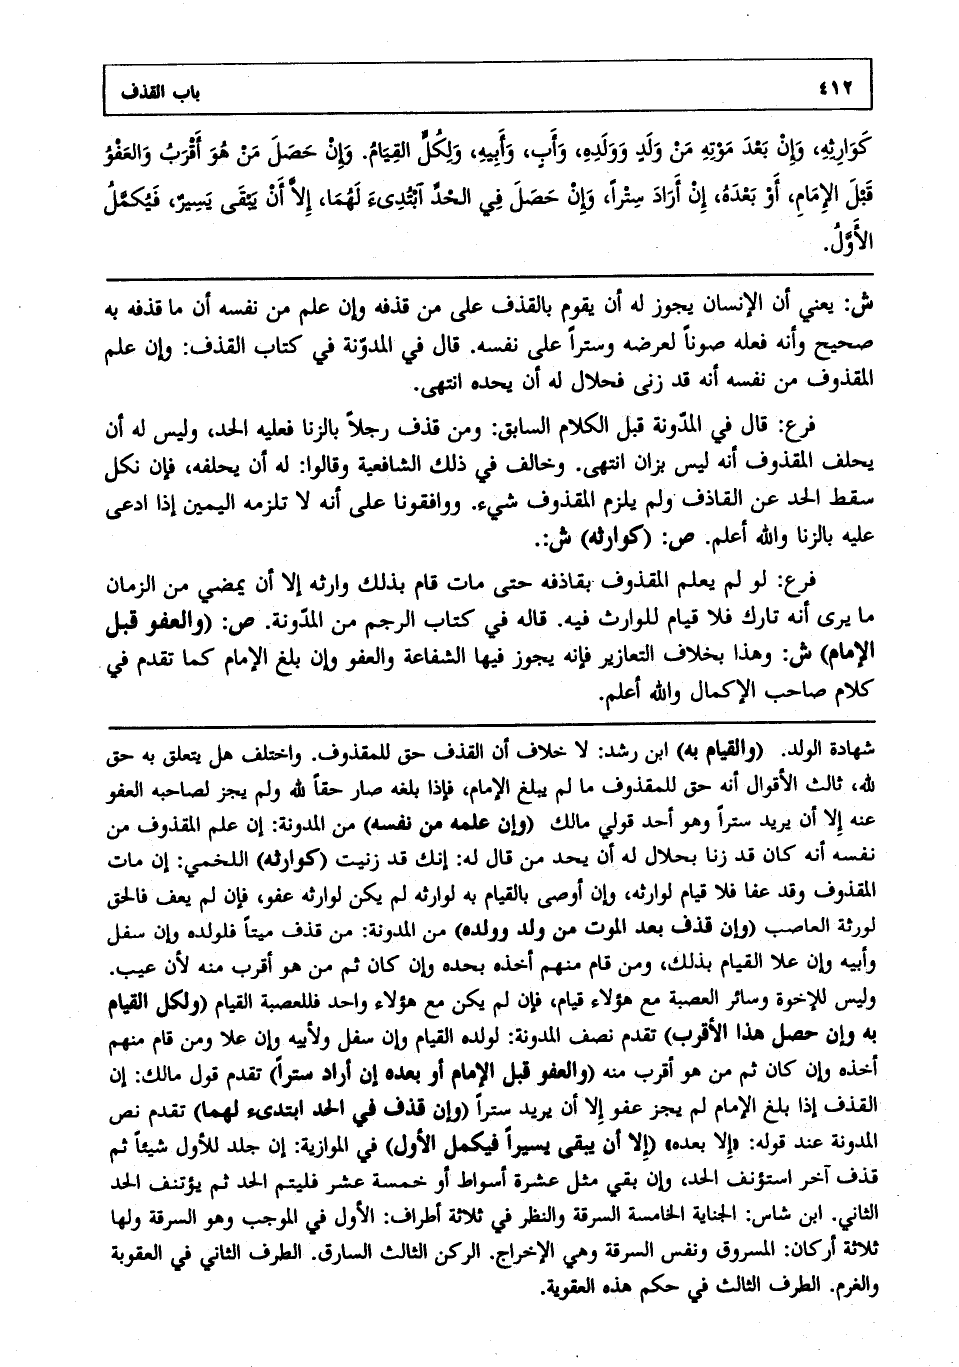 ٤١٢
باب القذف
كَوَارِثِهِ، وَإِنْ بَعْدَ مَوْتِهِ مَنْ وَلَدٍ وَوَلَدِهِ، وَأَبٍ، وَأَبِيهِ، وَلِكُلٍّ القِيَامُ. وَإِنْ حَصَلَ مَنْ هُوَ أَقْرَبُ وَالعَفْوُ
قَبْلَ الإِمَامِ، أَوْ بَعْدَهُ، إِنْ أَرَادَ سِتْراً، وَإِنْ حَصَلَ فِي الحَدِّ ٱبْتُدِىءَ لَهُمَا، إِلاَّ أَنْ يَبْقَى يَسِيرٌ، فَيُكمَّلُ
الأَوَّلُ.
ش: يعني أن الإنسان يجوز له أن يقوم بالقذف على من قذفه وإن علم من نفسه أن ما قذفه به
صحيح وأنه فعله صوناً لعرضه وستراً على نفسه. قال في المدوّنة في كتاب القذف: وإن علم
المقذوف من نفسه أنه قد زنى فحلال له أن يحده انتهى.
فرع: قال في المدّونة قبل الكلام السابق: ومن قذف رجلاً بالزنا فعليه الحد، وليس له أن
يحلف المقذوف أنه ليس بزان انتهى. وخالف في ذلك الشافعية وقالوا: له أن يحلفه، فإن نكل
سقط الحد عن القاذف ولم يلزم المقذوف شيء. ووافقونا على أنه لا تلزمه اليمين إذا ادعى
عليه بالزنا والله أعلم. ص: (كوارثه) ش:.
فرع: لو لم يعلم المقذوف بقاذفه حتى مات قام بذلك وارثه إلا أن يمضي من الزمان
ما يرى أنه تارك فلا قيام للوارث فيه. قاله في كتاب الرجم من المدّونة. ص: (والعفو قبل
الإمام) ش: وهذا بخلاف التعازير فإنه يجوز فيها الشفاعة والعفو وإن بلغ الإمام كما تقدم في
كلام صاحب الإكمال والله أعلم.
شهادة الولد. (والقيام به) ابن رشد: لا خلاف أن القذف حق للمقذوف. واختلف هل يتعلق به حق
لله، ثالث الأقوال أنه حق للمقذوف ما لم يبلغ الإمام، فإذا بلغه صار حقاً لله ولم يجز لصاحبه العفو
عنه إلا أن يريد ستراً وهو أحد قولي مالك (وإن علمه من نفسه) من المدونة: إن علم المقذوف من
نفسه أنه كان قد زنا بحلال له أن يحد من قال له: إنك قد زنيت (كوارثه) اللخمي: إن مات
المقذوف وقد عفا فلا قيام لوارثه، وإن أوصى بالقيام به لوارثه لم يكن لوارثه عفو، فإن لم يعف فالحق
لورثة العاصب (وإن قذف بعد الموت من ولد وولده) من المدونة: من قذف ميتاً فلولده وإن سفل
وأبيه وإن علا القيام بذلك، ومن قام منهم أخذه بحده وإن كان ثم من هو أقرب منه لأن عيب.
وليس للإخوة وسائر العصبة مع هؤلاء قيام، فإن لم يكن مع هؤلاء واحد فللعصبة القيام (ولكل القيام
به وإن حصل هذا الأقرب) تقدم نصف المدونة: لولده القيام وإن سفل ولأبيه وإن علا ومن قام منهم
أخذه وإن كان ثم من هو أقرب منه (والعفو قبل الإمام أو بعده إن أراد ستراً) تقدم قول مالك: إن
القذف إذا بلغ الإمام لم يجز عفو إلا أن يريد ستراً (وإن قذف في الحد ابتدىء لهما) تقدم نص
المدونة عند قوله: «إلا بعده» (إلا أن يبقى يسيراً فيكمل الأول) في الموازية: إن جلد للأول شيئاً ثم
قذف آخر استؤنف الحد، وإن بقي مثل عشرة أسواط أو خمسة عشر فليتم الحد ثم يؤتنف الحد
الثاني. ابن شاس: الجناية الخامسة السرقة والنظر في ثلاثة أطراف: الأول في الموجب وهو السرقة ولها
ثلاثة أركان: المسروق ونفس السرقة وهي الإخراج. الركن الثالث السارق. الطرف الثاني في العقوبة
والغرم. الطرف الثالث في حكم هذه العقوبة.